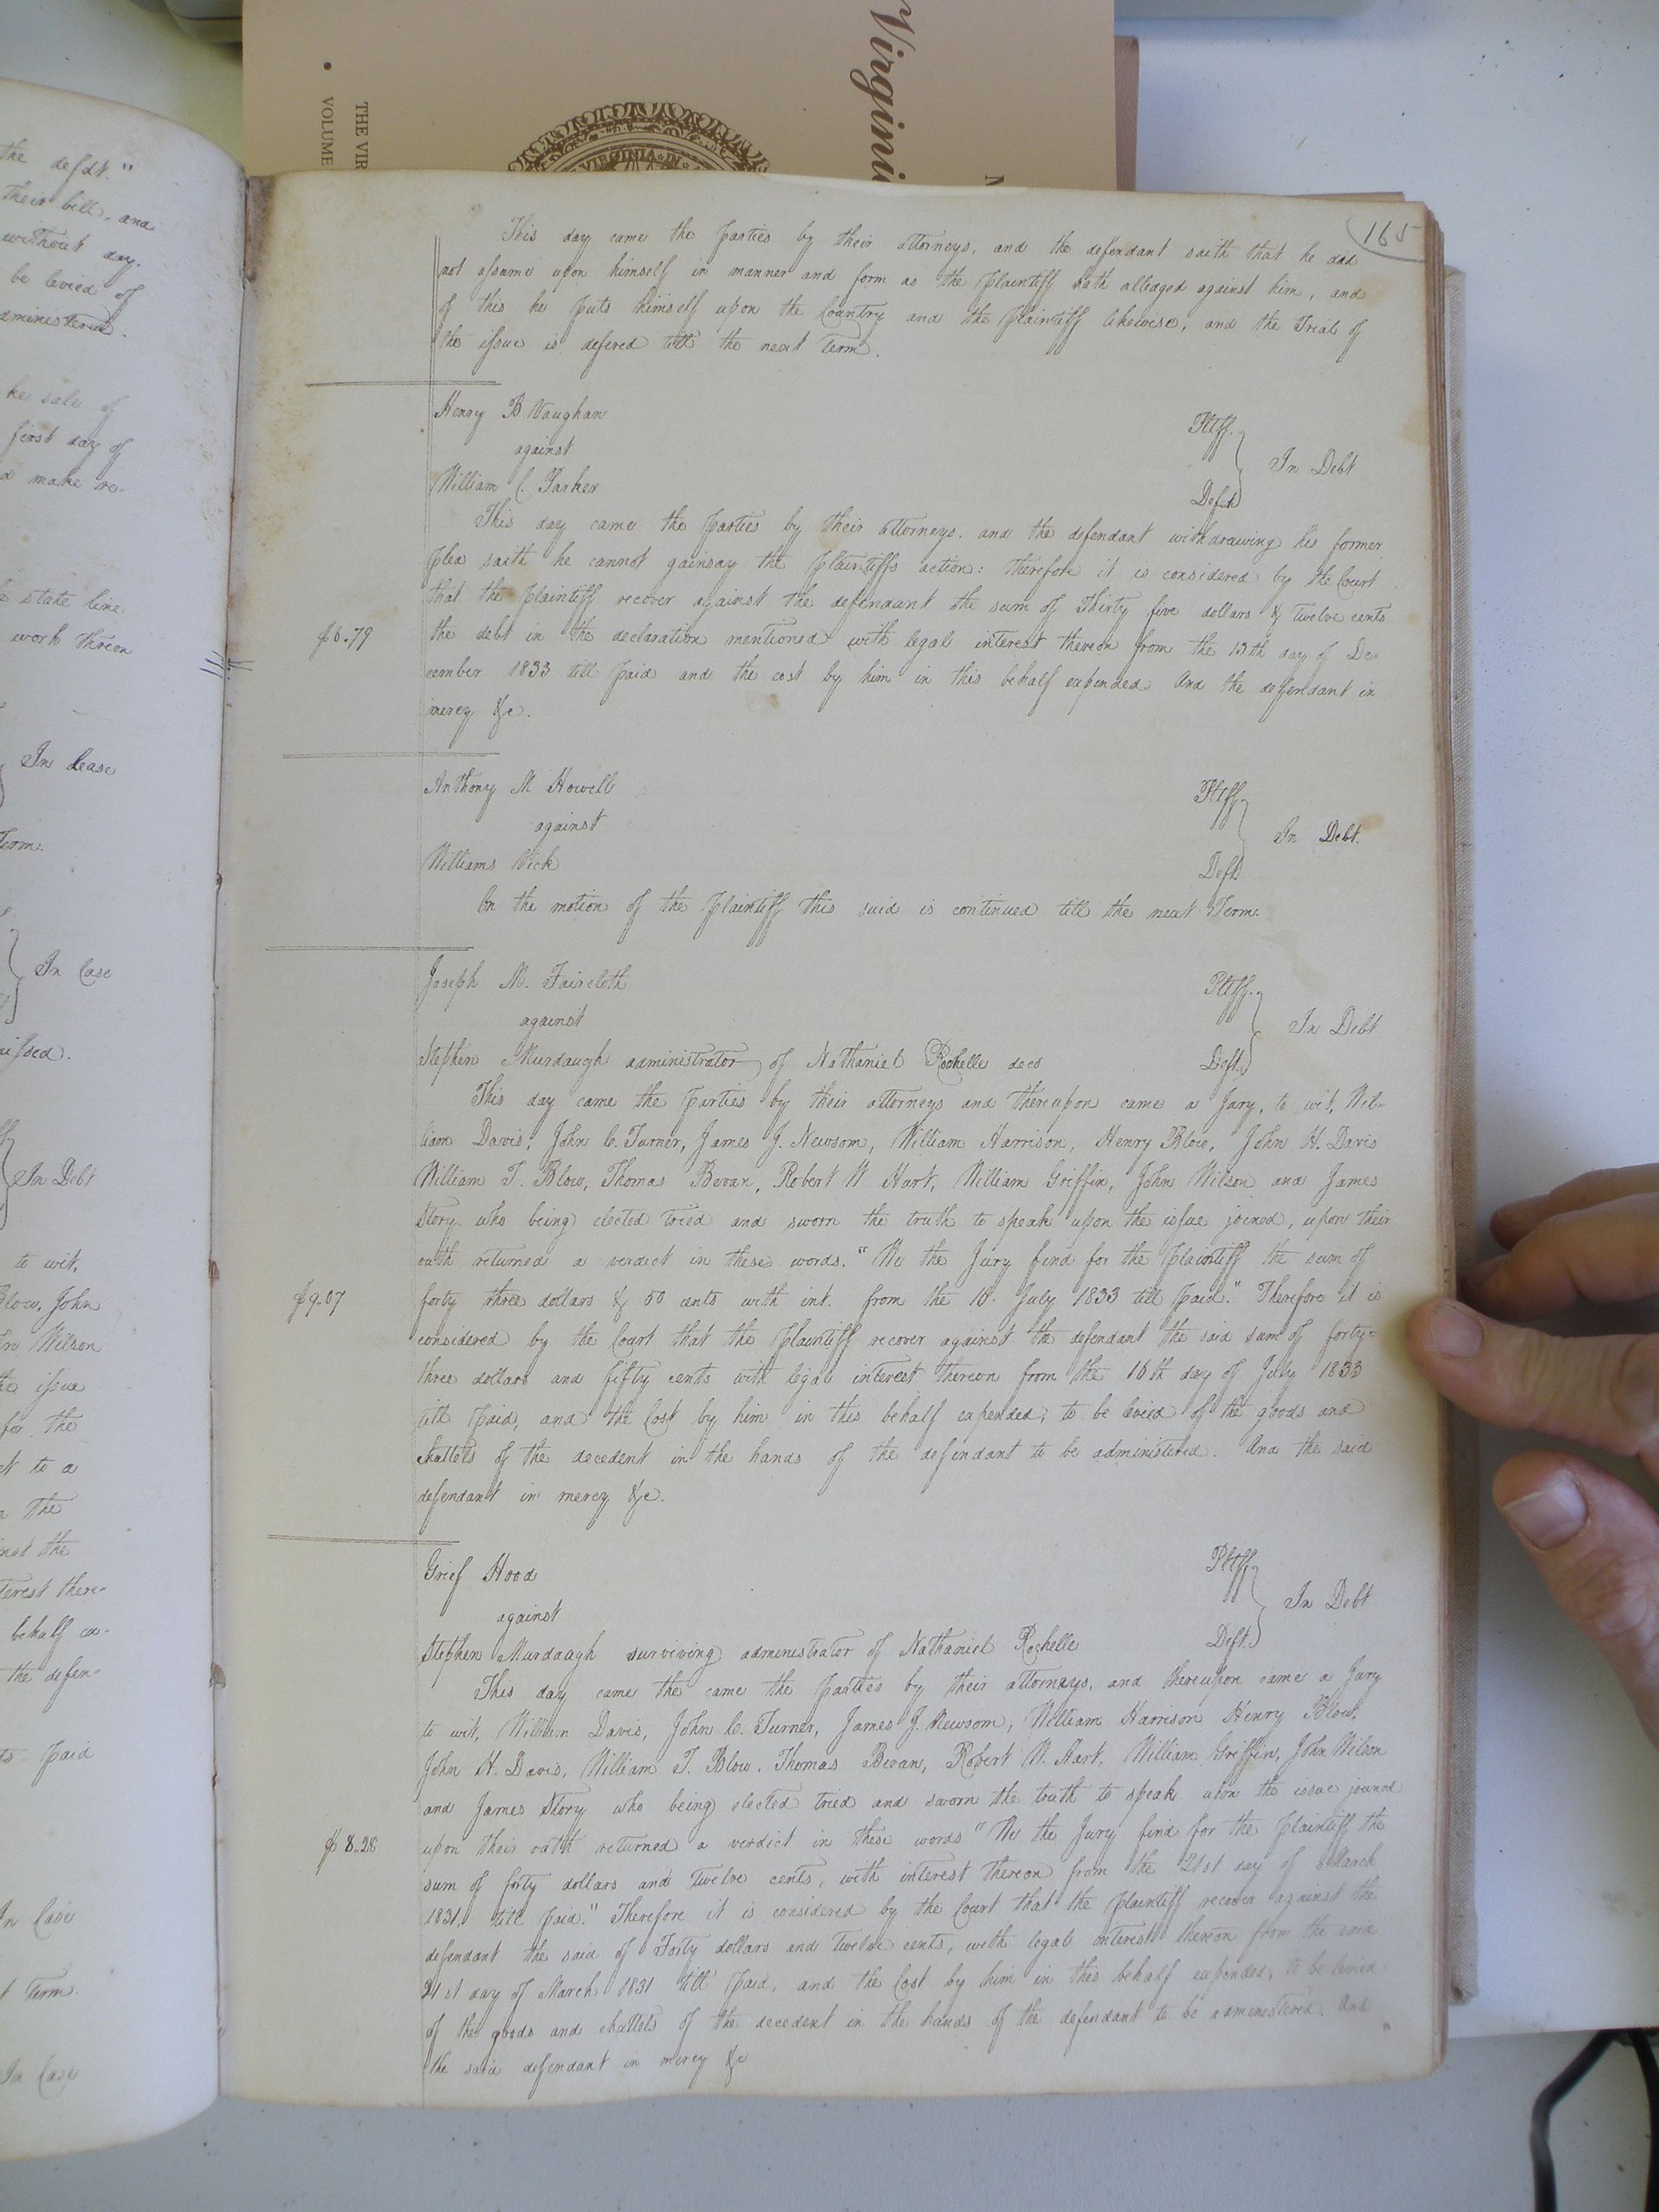 Virgini
THE VIR
VOLUME
VIRGINIA IN
the defdt."
their bill, and
without day.
be levied of
administered.
he sale of
first day of
d make re-
state line
work threon
In Case
Term.
In Case
In Debt
to wit,
Blow, John
Wilson
issue
for the
to a
the
the
terest there-
behalf ex-
the defen-
paid
In Case
Term
In Case
165
This day came the parties by their attorneys, and the defendant saith that he did
not assume upon himself in manner and form as the plaintiff hath alledged against him, and
of this he puts himself upon the Country and the plaintiff likewise, and the Trial of
the issue is defered till the next Term.
Henry B Vaughan Pltff.
against In Debt
William C. Parker Deft
This day came the parties by their attorneys, and the defendant withdrawing his former
plea saith he cannot gainsay the plaintiffs action: therefore it is considered by the Court
that the plaintiff recover against the defendant the sum of Thirty five dollars & twelve cents
$6.79 the debt in the declaration mentioned with legal interest thereon from the 13th day of De-
cember 1833 till paid and the cost by him in this behalf expended And the defendant in
mercy &c.
Anthony M Howell Pltff
against In Debt.
Williams Vick Deft
On the motion of the plaintiff this suid is continued till the next Term.
Joseph M. Faircloth Pltff.
against In Debt
Stephen Murdaugh administrator of Nathaniel Rochelle decd Deft.
This day came the parties by their attorneys and thereupon came a Jury, to wit, Wil-
liam Davis, John C. Turner, James J. Newsom, William Harrison, Henry Blow, John H. Davis
William T. Blow, Thomas Bevan, Robert W Hart, William Griffin, John Wilson and James
Story who being elected tried and sworn the truth to speak upon the issue joined, upon their
oath returned a verdict in these words. "We the Jury find for the plaintiff the sum of
$9.07 forty three dollars & 50 cents with int. from the 16. July 1833 till paid." Therefore it is
considered by the Court that the plaintiff recover against the defendant the said sum of forty-
three dollars and fifty cents with legal interest thereon from the 16th day of July 1833
till paid, and the Cost by him in this behalf expended, to be levied of the goods and
chattels of the decedent in the hands of the defendant to be administered. And the said
defendant in mercy &c.
Grief Hood Pltff
against In Debt
Stephen Murdaugh surviving administrator of Nathaniel Rochelle Deft.
This day came the came the parties by their attorneys, and thereupon came a Jury
to wit, William Davis, John C. Turner, James J. Newsom, William Harrison Henry Blow,
John H. Davis, William T. Blow, Thomas Bevan, Robert W. Hart, William Griffin, John Wilson
and James Story who being elected tried and sworn the truth to speak upon the issue joined
$8.28 upon their oath returned a verdict in these words "We the Jury find for the plaintiff the
sum of forty dollars and twelve cents, with interest thereon from the 21st day of March
1831, till paid." Therefore it is considered by the Court that the plaintiff recover against the
defendant the said of Forty dollars and twelve cents, with legal interest thereon from the said
21st day of March 1831 till paid, and the Cost by him in this behalf expended, to be levied
of the goods and chattels of the decedent in the hands of the defendant to be administered. And
the said defendant in mercy &c